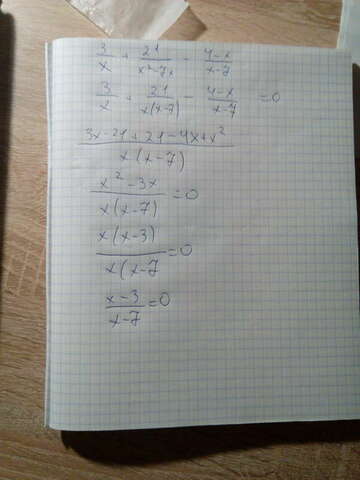 3/x + 21/x²-7x - 4-x/x-7
3/x + 21/x(x-7) - 4-x/x-7 = 0
3x-21+21-4x+x²/x(x-7)
x²-3x/x(x-7) = 0
x(x-3)/x(x-7 = 0
x-3/x-7 = 0